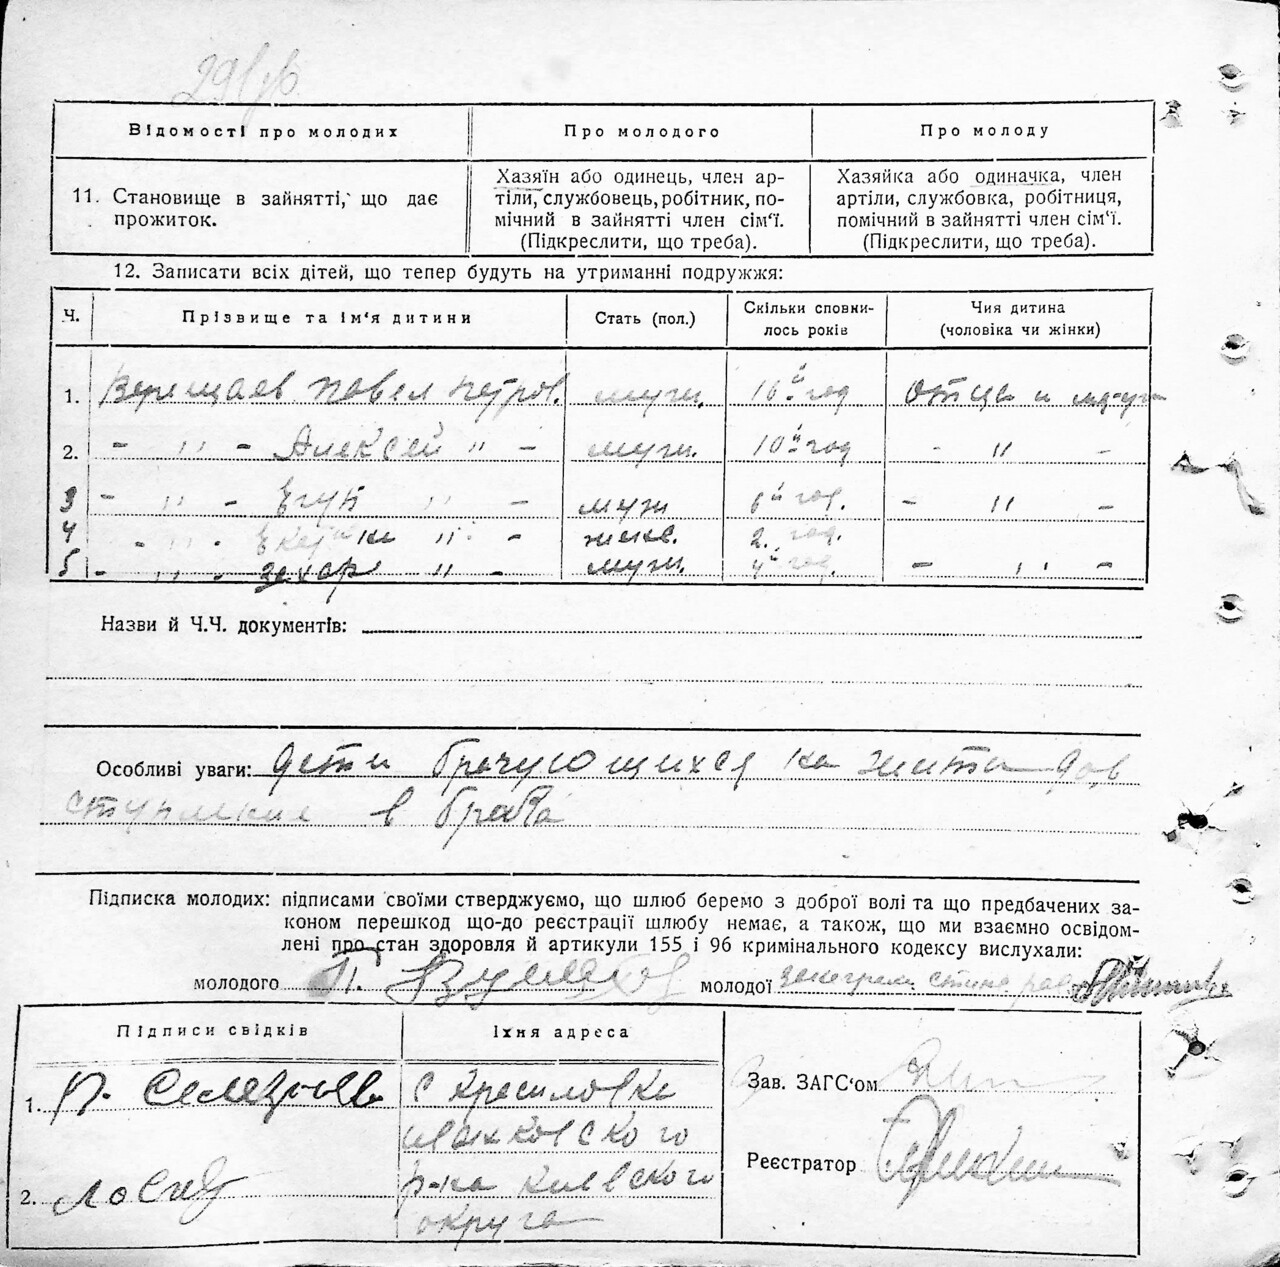 Відомості про молодих
Про молодого
Про молоду
11. Становище в зайнятті, що дає
прожиток.
Хазяїн або одинець, член ар-
тіли, службовець, робітник, по-
мічний в зайнятті член сім'ї.
(Підкреслити, що треба).
Хазяйка або одиначка, член
артіли, службовка, робітниця,
помічний в зайнятті член сім'ї.
(Підкреслити, що треба).
12. Записати всіх дітей, що тепер будуть на утриманні подружжя:
Ч.
Прізвище та ім'я дитини
Стать (пол.)
Скільки сповни-
лось років
Чия дитина
(чоловіка чи жінки)
1. Верещаев Павел Петров. муж. 16й год отца и
2. - " - Алексей " - муж. 10й год - " -
3 - " - " - муж 6й год. - " -
4 - " - " - женс. 2 год.
5 - " - Захар " - муж. 4й год. - " -
Назви й Ч.Ч. документів:
Особливі уваги: дети брачующихся
в брака
Підписка молодих: підписами своїми стверджуємо, що шлюб беремо з доброї волі та що предбачених за-
коном перешкод що-до реєстрації шлюбу немає, а також, що ми взаємно освідом-
лені про стан здоровля й артикули 155 і 96 кримінального кодексу вислухали:
молодого П.
молодої
Підписи свідків
Їхня адреса
1.
с
2.
р-на Киевского
округа
Зав. ЗАГС'ом
Реєстратор